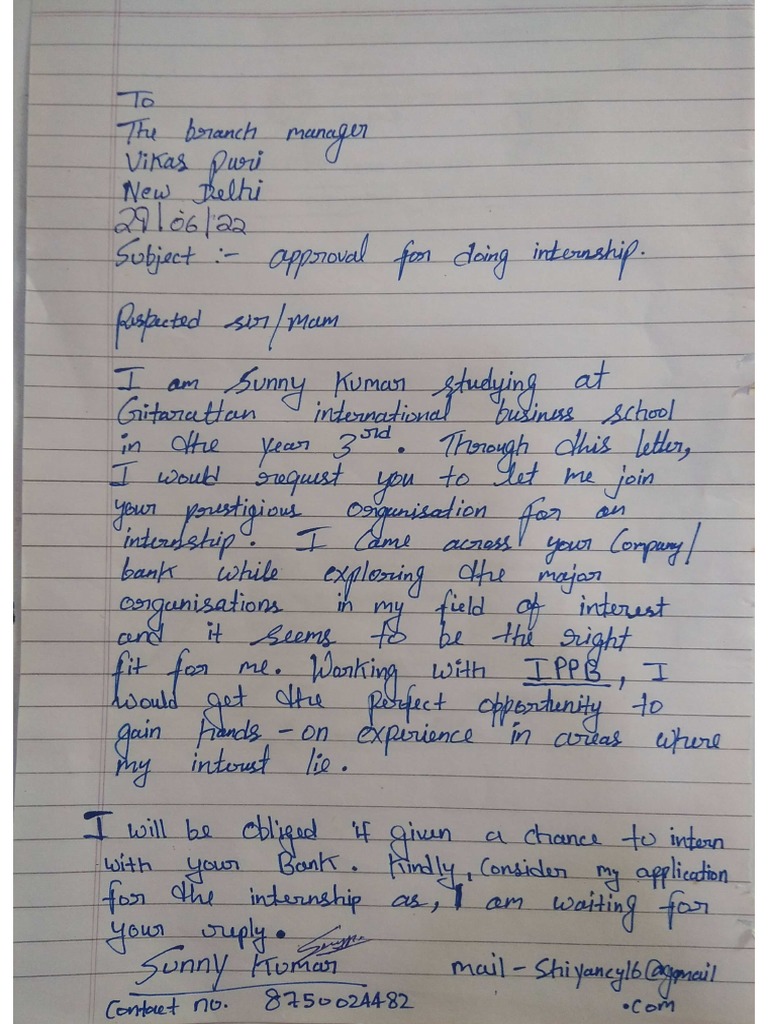 To
The branch manager
Vikas Puri
New Delhi
29/06/22
Subject :- approval for doing internship.
Respected sir/mam
I am Sunny Kumar studying at
Gitarattan international business school
in the year 3rd. Through this letter,
I would request you to let me join
your prestigious organisation for an
internship. I came across your Company/
bank while exploring the major
organisations in my field of interest
and it seems to be the right
fit for me. Working with IPPB, I
would get the perfect opportunity to
gain hands-on experience in areas where
my interst lie.
I will be obliged if given a chance to intern
with your Bank. Kindly, Consider my application
for the internship as, I am waiting for
your reply.
Sunny Kumar mail - Shiyancy16@gmail
.com
Contact no. 8750024482